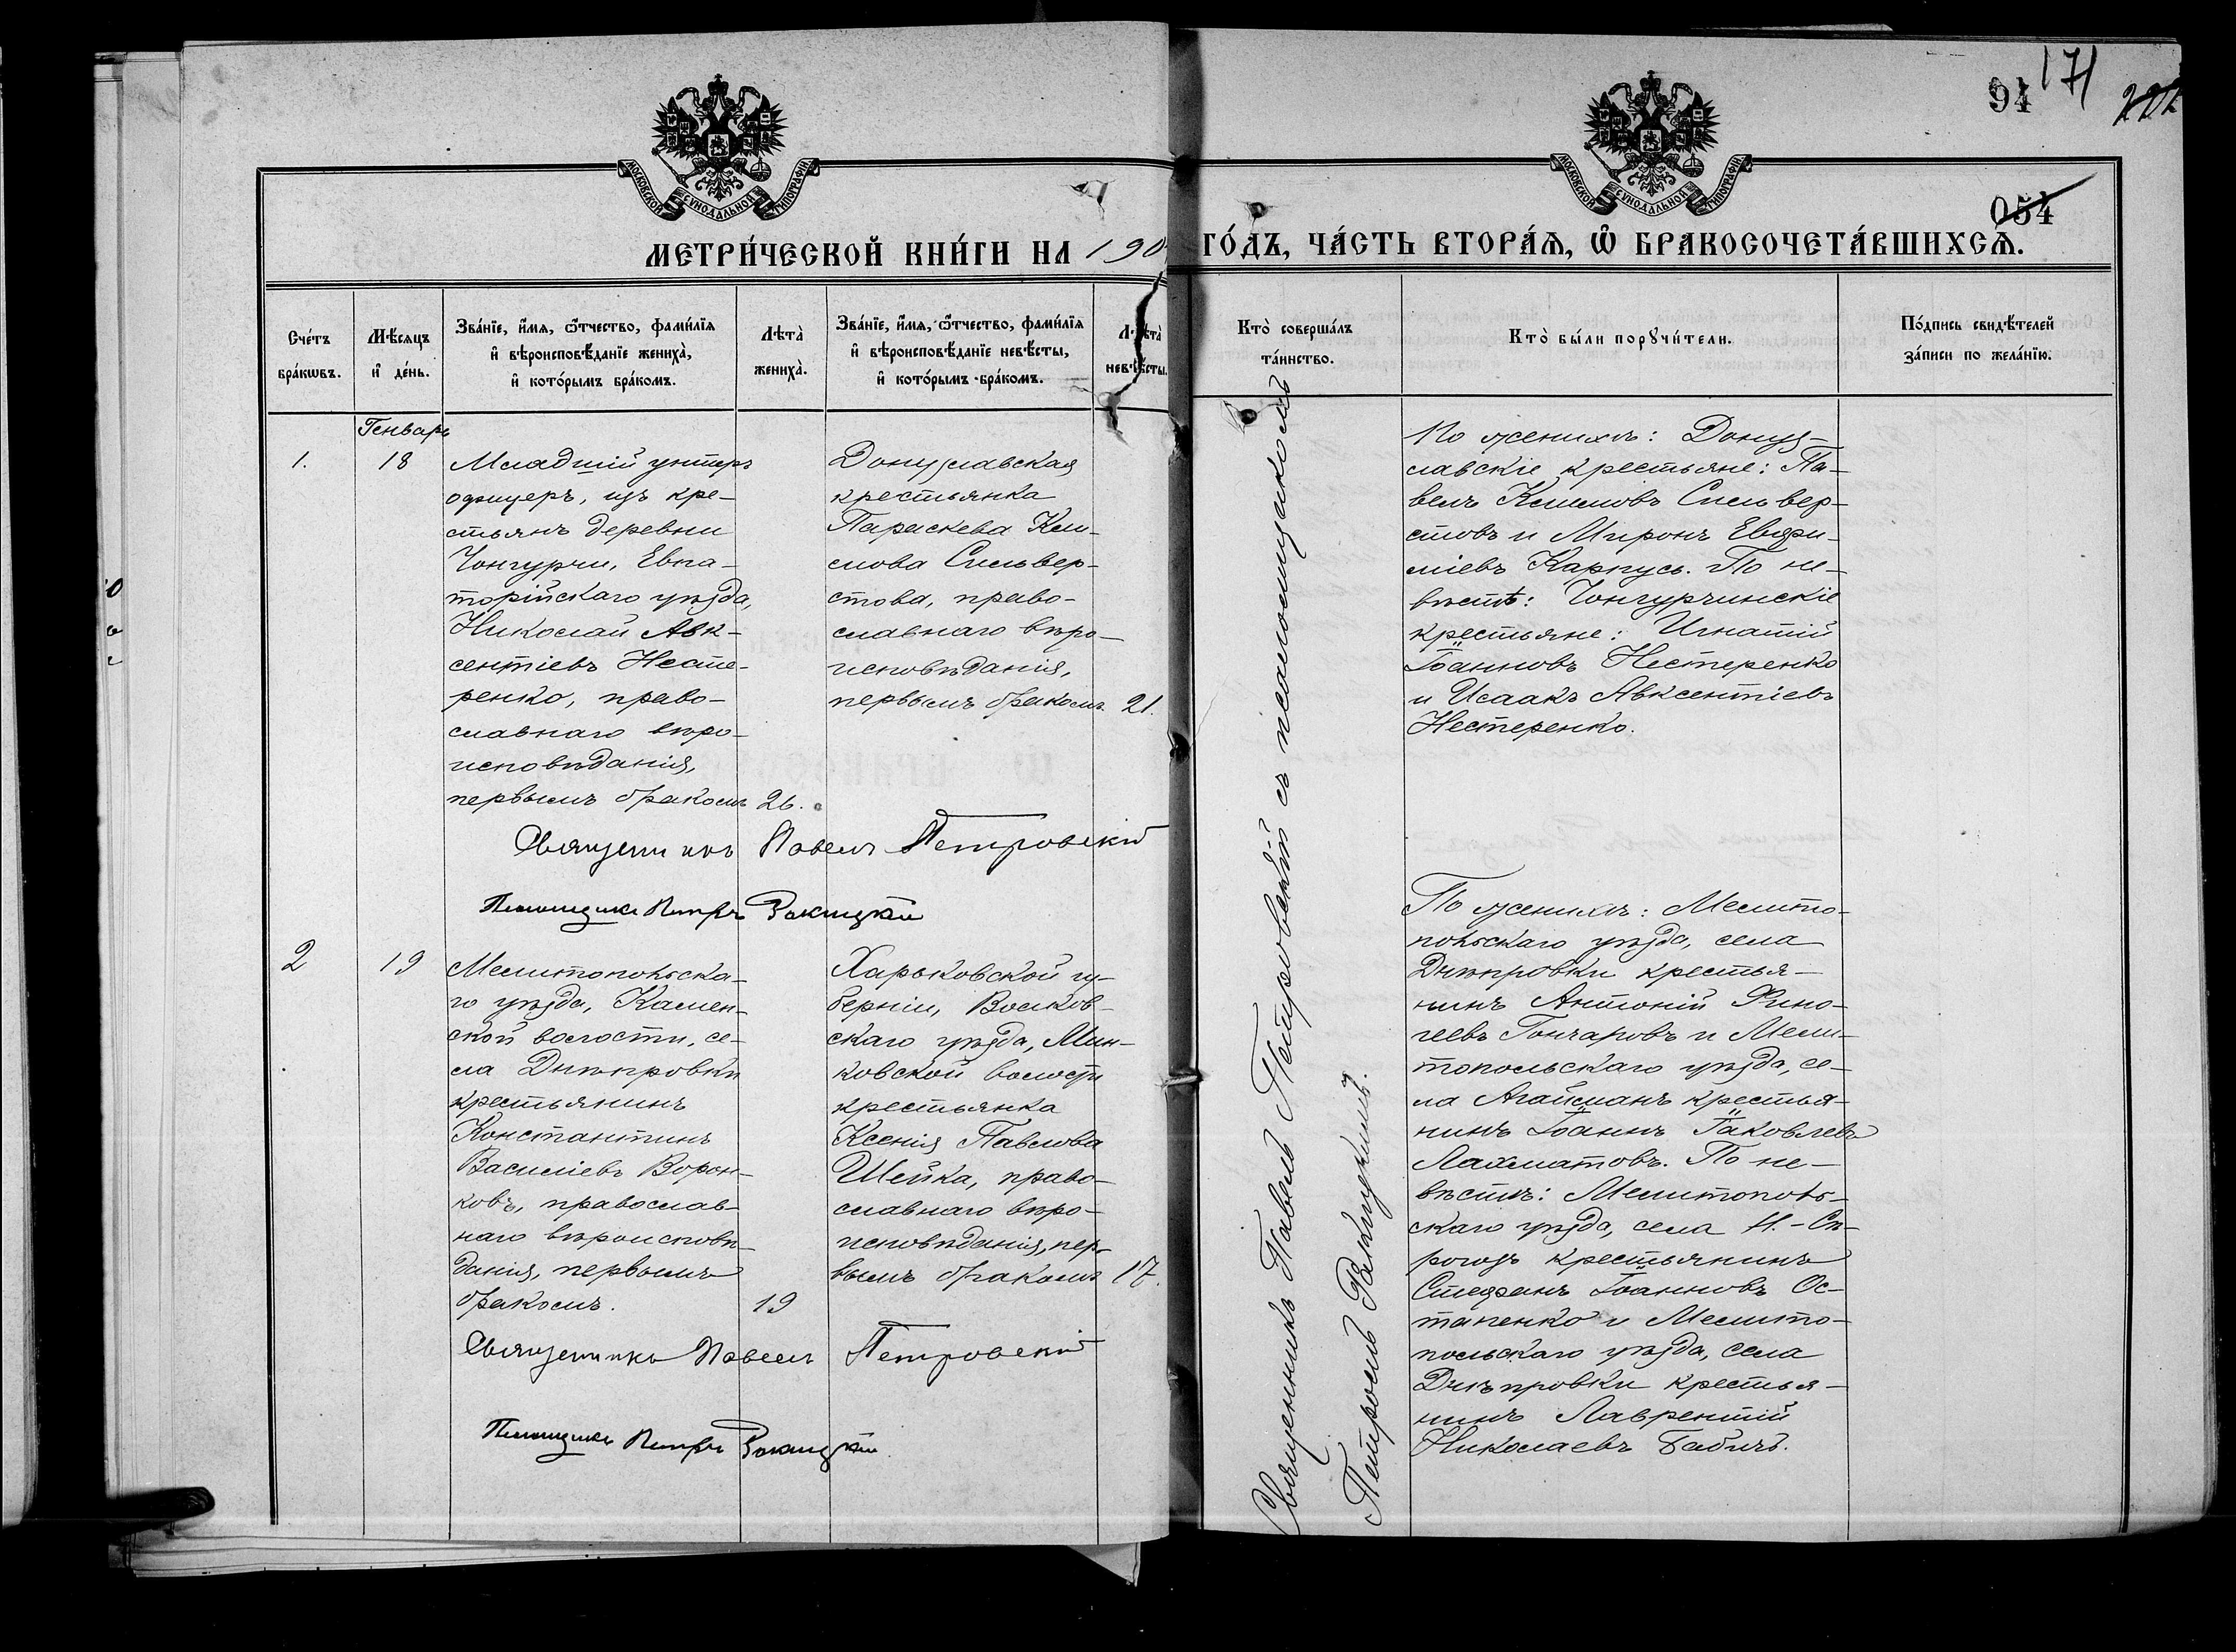 94 171
054
МОСКОВСКОЙ СѴНОДАЛЬНОЙ ТИПОГРАФІИ
МОСКОВСКОЙ СѴНОДАЛЬНОЙ ТИПОГРАФІИ
МЕТРИ́ЧЕСКОЙ КНИ́ГИ НА 190 ГО́ДЪ, ЧА́СТЬ ВТОРА́Ѧ, Ѽ БРАКОСОЧЕТА́ВШИХСѦ.
Сче́тъ
бра́кѡвъ.
Мѣ́сяцъ
и҆ де́нь.
Зва́нїе, и҆́мя, ѻ҆́тчество, фами́лїя
и҆ вѣроисповѣ́данїе жениха̀,
и҆ кото́рымъ бра́комъ.
Лѣта̀
жениха̀.
Зва́нїе, и҆́мя, ѻ҆́тчество, фами́лїя
и҆ вѣроисповѣ́данїе невѣ́сты,
и҆ кото́рымъ бра́комъ.
Лѣта̀
невѣ́сты.
Кто̀ соверша́лъ
та́инство.
Кто̀ бы́ли порꙋчи́тели.
По́дпись свидѣ́телей
за́писи по жела́нїю.
Генварь
1.
18
Младшій унтеръ
офицеръ, изъ кре-
стьянъ деревни
Чонгурчи, Евпа-
торійскаго уѣзда,
Николай Авк-
сентіевъ Несте-
ренко, право-
славнаго вѣро-
исповѣданія,
первымъ бракомъ
26.
Донузлавская
крестьянка
Параскева Кли-
мова Сильвер-
стова, право-
славнаго вѣро-
исповѣданія,
первымъ бракомъ
21.
Священникъ Павелъ Петровскій
Псаломщикъ Петръ Ракицкій
По женихѣ: Донуз-
лавскіе крестьяне: Па-
велъ Климовъ Сильвер-
стовъ и Миронъ Евфи-
міевъ Карпусь. По не-
вѣстѣ: Чонгурчинскіе
крестьяне: Игнатій
Іоанновъ Нестеренко
и Исаакъ Авксентіевъ
Нестеренко.
2
19
Мелитопольска-
го уѣзда, Камен-
ской волости, се-
ла Днѣпровки
крестьянинъ
Константинъ
Василіевъ Ворон-
ковъ, православ-
наго вѣроисповѣ-
данія, первымъ
бракомъ.
19
Харьковской гу-
берніи, Волков-
скаго уѣзда, Мин-
ковской волости
крестьянка
Ксенія Павлова
Шейка, право-
славнаго вѣро-
исповѣданія, пер-
вымъ бракомъ
17.
Священникъ Павелъ Петровскій
Псаломщикъ Петръ Ракицкій
Священникъ Павелъ Петровскій съ псаломщикомъ
Петромъ Ракицкимъ.
По женихѣ: Мелито-
польскаго уѣзда, села
Днѣпровки крестья-
нинъ Антоній Фино-
геевъ Гончаровъ и Мели-
топольскаго уѣзда, се-
ла Агайманъ крестья-
нинъ Іоаннъ Іаковлевъ
Лахматовъ. По не-
вѣстѣ: Мелитополь-
скаго уѣзда, села Н.-Сѣ-
рогозъ крестьянинъ
Стефанъ Іоанновъ Ос-
тапенко и Мелито-
польскаго уѣзда, села
Днѣпровки крестья-
нинъ Лаврентій
Николаевъ Бабичъ.